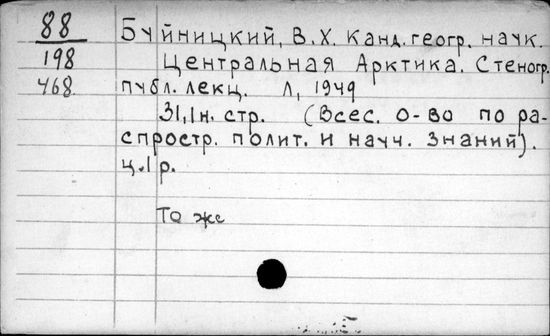 88
198
468
Буйницкий, В.Х. Канд. геогр. наук.
Центральная Арктика. Стеногр.
публ. лекц. Л, 1949
31,1н. стр. (Всес. о-во по ра-
спростр. полит. и науч. знаний).
ц.1 р.
То же